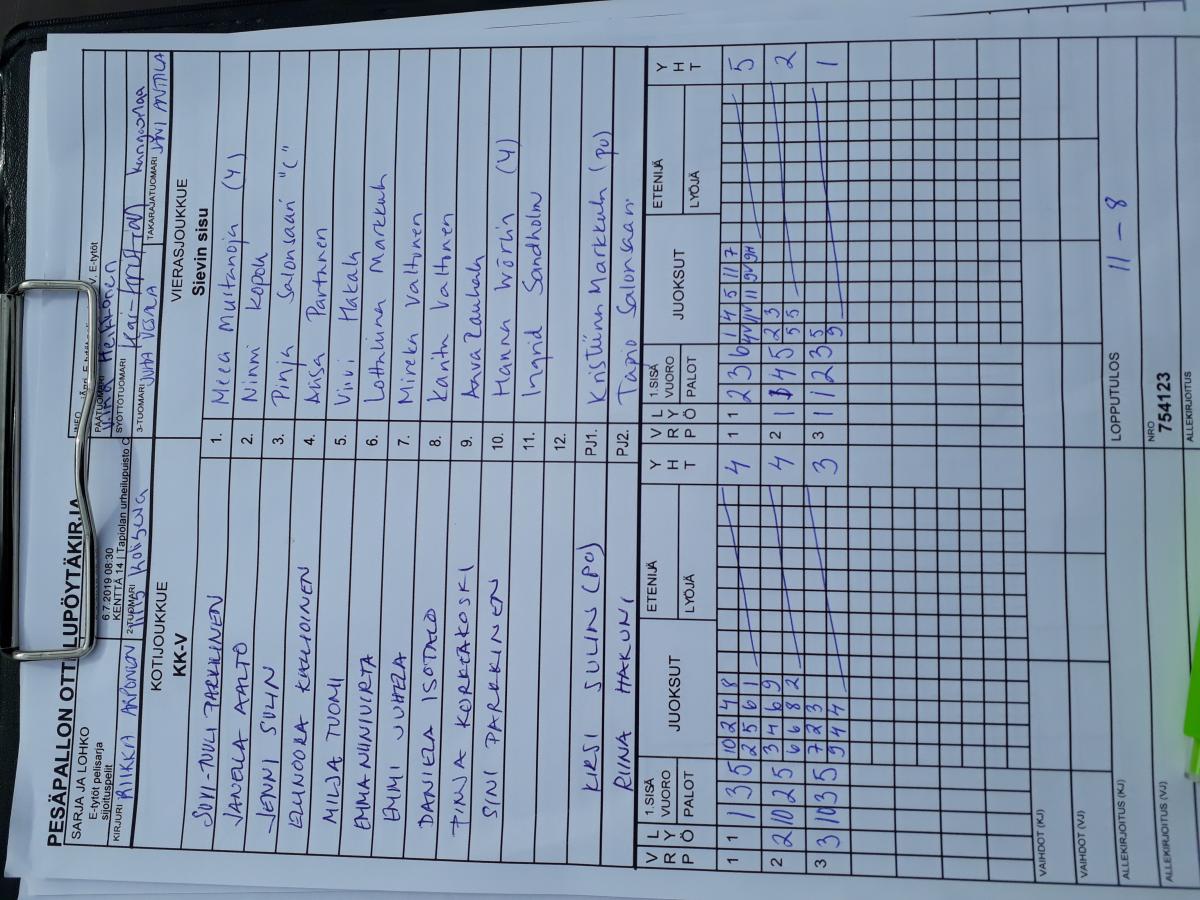 PESÄPALLON OTTELUPÖYTÄKIRJA
SARJA JA LOHKO
E-tytöt pelisarja
sijoituspelit
6.7.2019 08:30
KENTTÄ 14 | Tapiolan urheilupuisto C
INFO
V. E-tytöt
PÄÄTUOMARI
SYÖTTÖTUOMARI
KIRJURI RIIKKA ARPONEN
2-TUOMARI
3-TUOMARI JUHA
TAKARAJATUOMARI JANI ANTTILA
KOTIJOUKKUE
KK-V
VIERASJOUKKUE
Sievin sisu
SUVI-TUULI PARKKINEN 1. Meea Muitanoja (4)
JANELLA AALTO 2. Ninni Kopola
JENNI SULIN 3. Pinja Salonsaari "C"
EEVNOORA KALHONEN 4. Adisa Partanen
MILJA TUOMI 5. Viivi Hakala
EMMA NIINIVIRTA 6. Lottaliina Markkula
EMMI JUHELA 7. Mireka Valtonen
DANIELA ISOTALO 8. Kanita Valtonen
PINJA KORKEAKOSKI 9. Aava Rauhala
SINI PARKKINEN 10. Hanna Wörlin (4)
11. Ingrid Sandholm
12.
KIRSI SULIN (PO) PJ1. Kristiina Markkula (PU)
RIINA HAKUNI PJ2. Tapio Salonsaari
VRP LYÖ 1.SISÄ VUORO PALOT JUOKSUT ETENIJÄ LYÖJÄ YHT VRP LYÖ 1.SISÄ VUORO PALOT JUOKSUT ETENIJÄ LYÖJÄ YHT
1 1 1 3 5 10 2 4 8 4 1 1 2 3 6 4 5 11 7 5
2 5 6 1
2 2 10 2 5 3 4 6 9 4 2 1 4 5 2 3 2
6 6 8 2 5 5
3 3 10 3 5 7 2 3 3 3 1 1 2 3 5 1
9 4 4 9
VAIHDOT (KJ)
VAIHDOT (VJ)
LOPPUTULOS 11 - 8
ALLEKIRJOITUS (KJ)
NRO
754123
ALLEKIRJOITUS (VJ)
ALLEKIRJOITUS